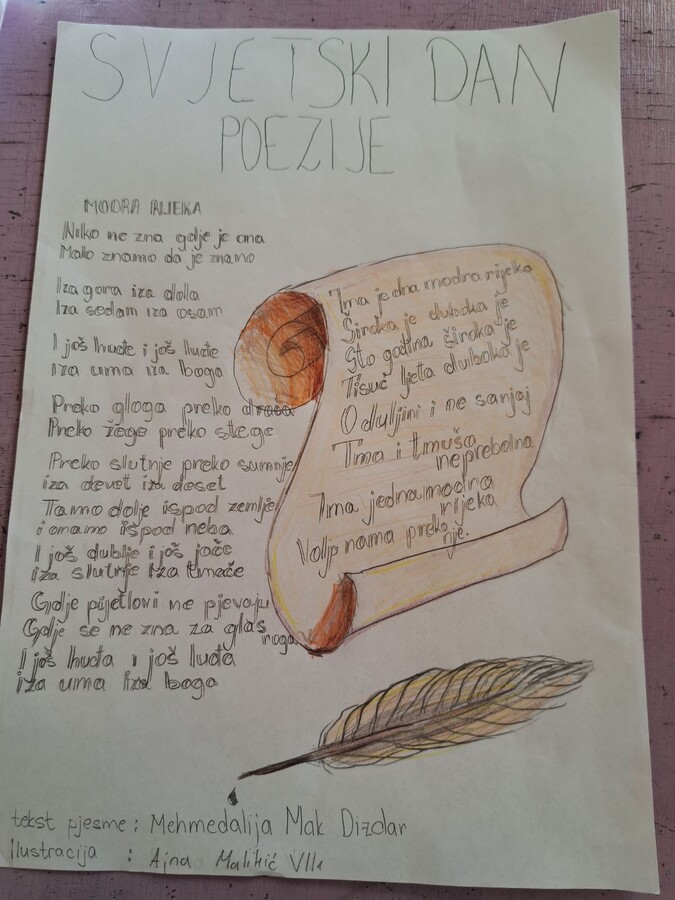 SVJETSKI DAN
POEZIJE
MODRA RIJEKA
Niko ne zna gdje je ona
Malo znamo da je znano
Iza gora iza dola
Iza sedam iza osam
I još huđe i još luđe
iza uma iza boga
Preko gloga preko drača
Preko žege preko stege
Preko slutnje preko sumnje
iza devet iza deset
Tamo dolje ispod zemlje
i onamo ispod neba
I još dublje i još jače
iza slutnje iza tmače
Gdje pijetlovi ne pjevaju
Gdje se ne zna za glas
roga
I još huđa i još luđa
iza uma iza boga
Ima jedna modra rijeka
Široka je duboka je
Sto godina široka je
Tisuć ljeta duboka je
O duljini i ne sanjaj
Tma i tmuša
neprebolna
Ima jedna modra
rijeka
Valja nama preko
nje.
tekst pjesme : Mehmedalija Mak Dizdar
Ilustracija : Ajna Malikić VII1